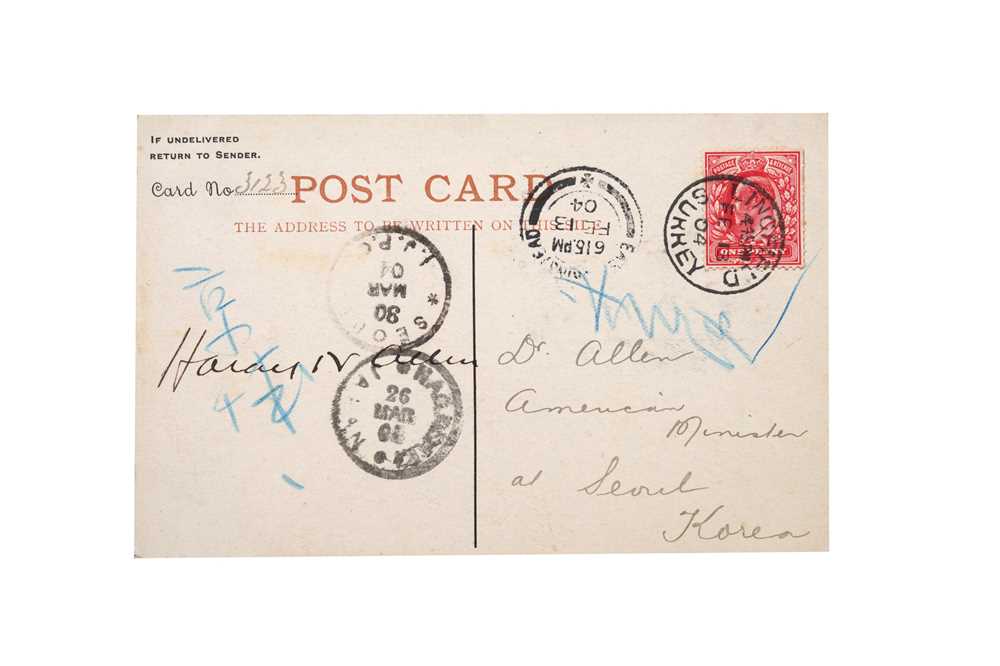 IF UNDELIVERED
RETURN TO SENDER.
Card No 3123
POST CARD
THE ADDRESS TO BE WRITTEN ON THIS SIDE
ONE PENNY
LINGFIELD
FE 13
04
SURREY
6 15 PM
FE 13
04
I.J.P.O.
SEOUL
30
MAR
04
NAGASAKI
JAPAN
26
MAR
Allen
Dr. Allen
American
Minister
at Seoul
Korea